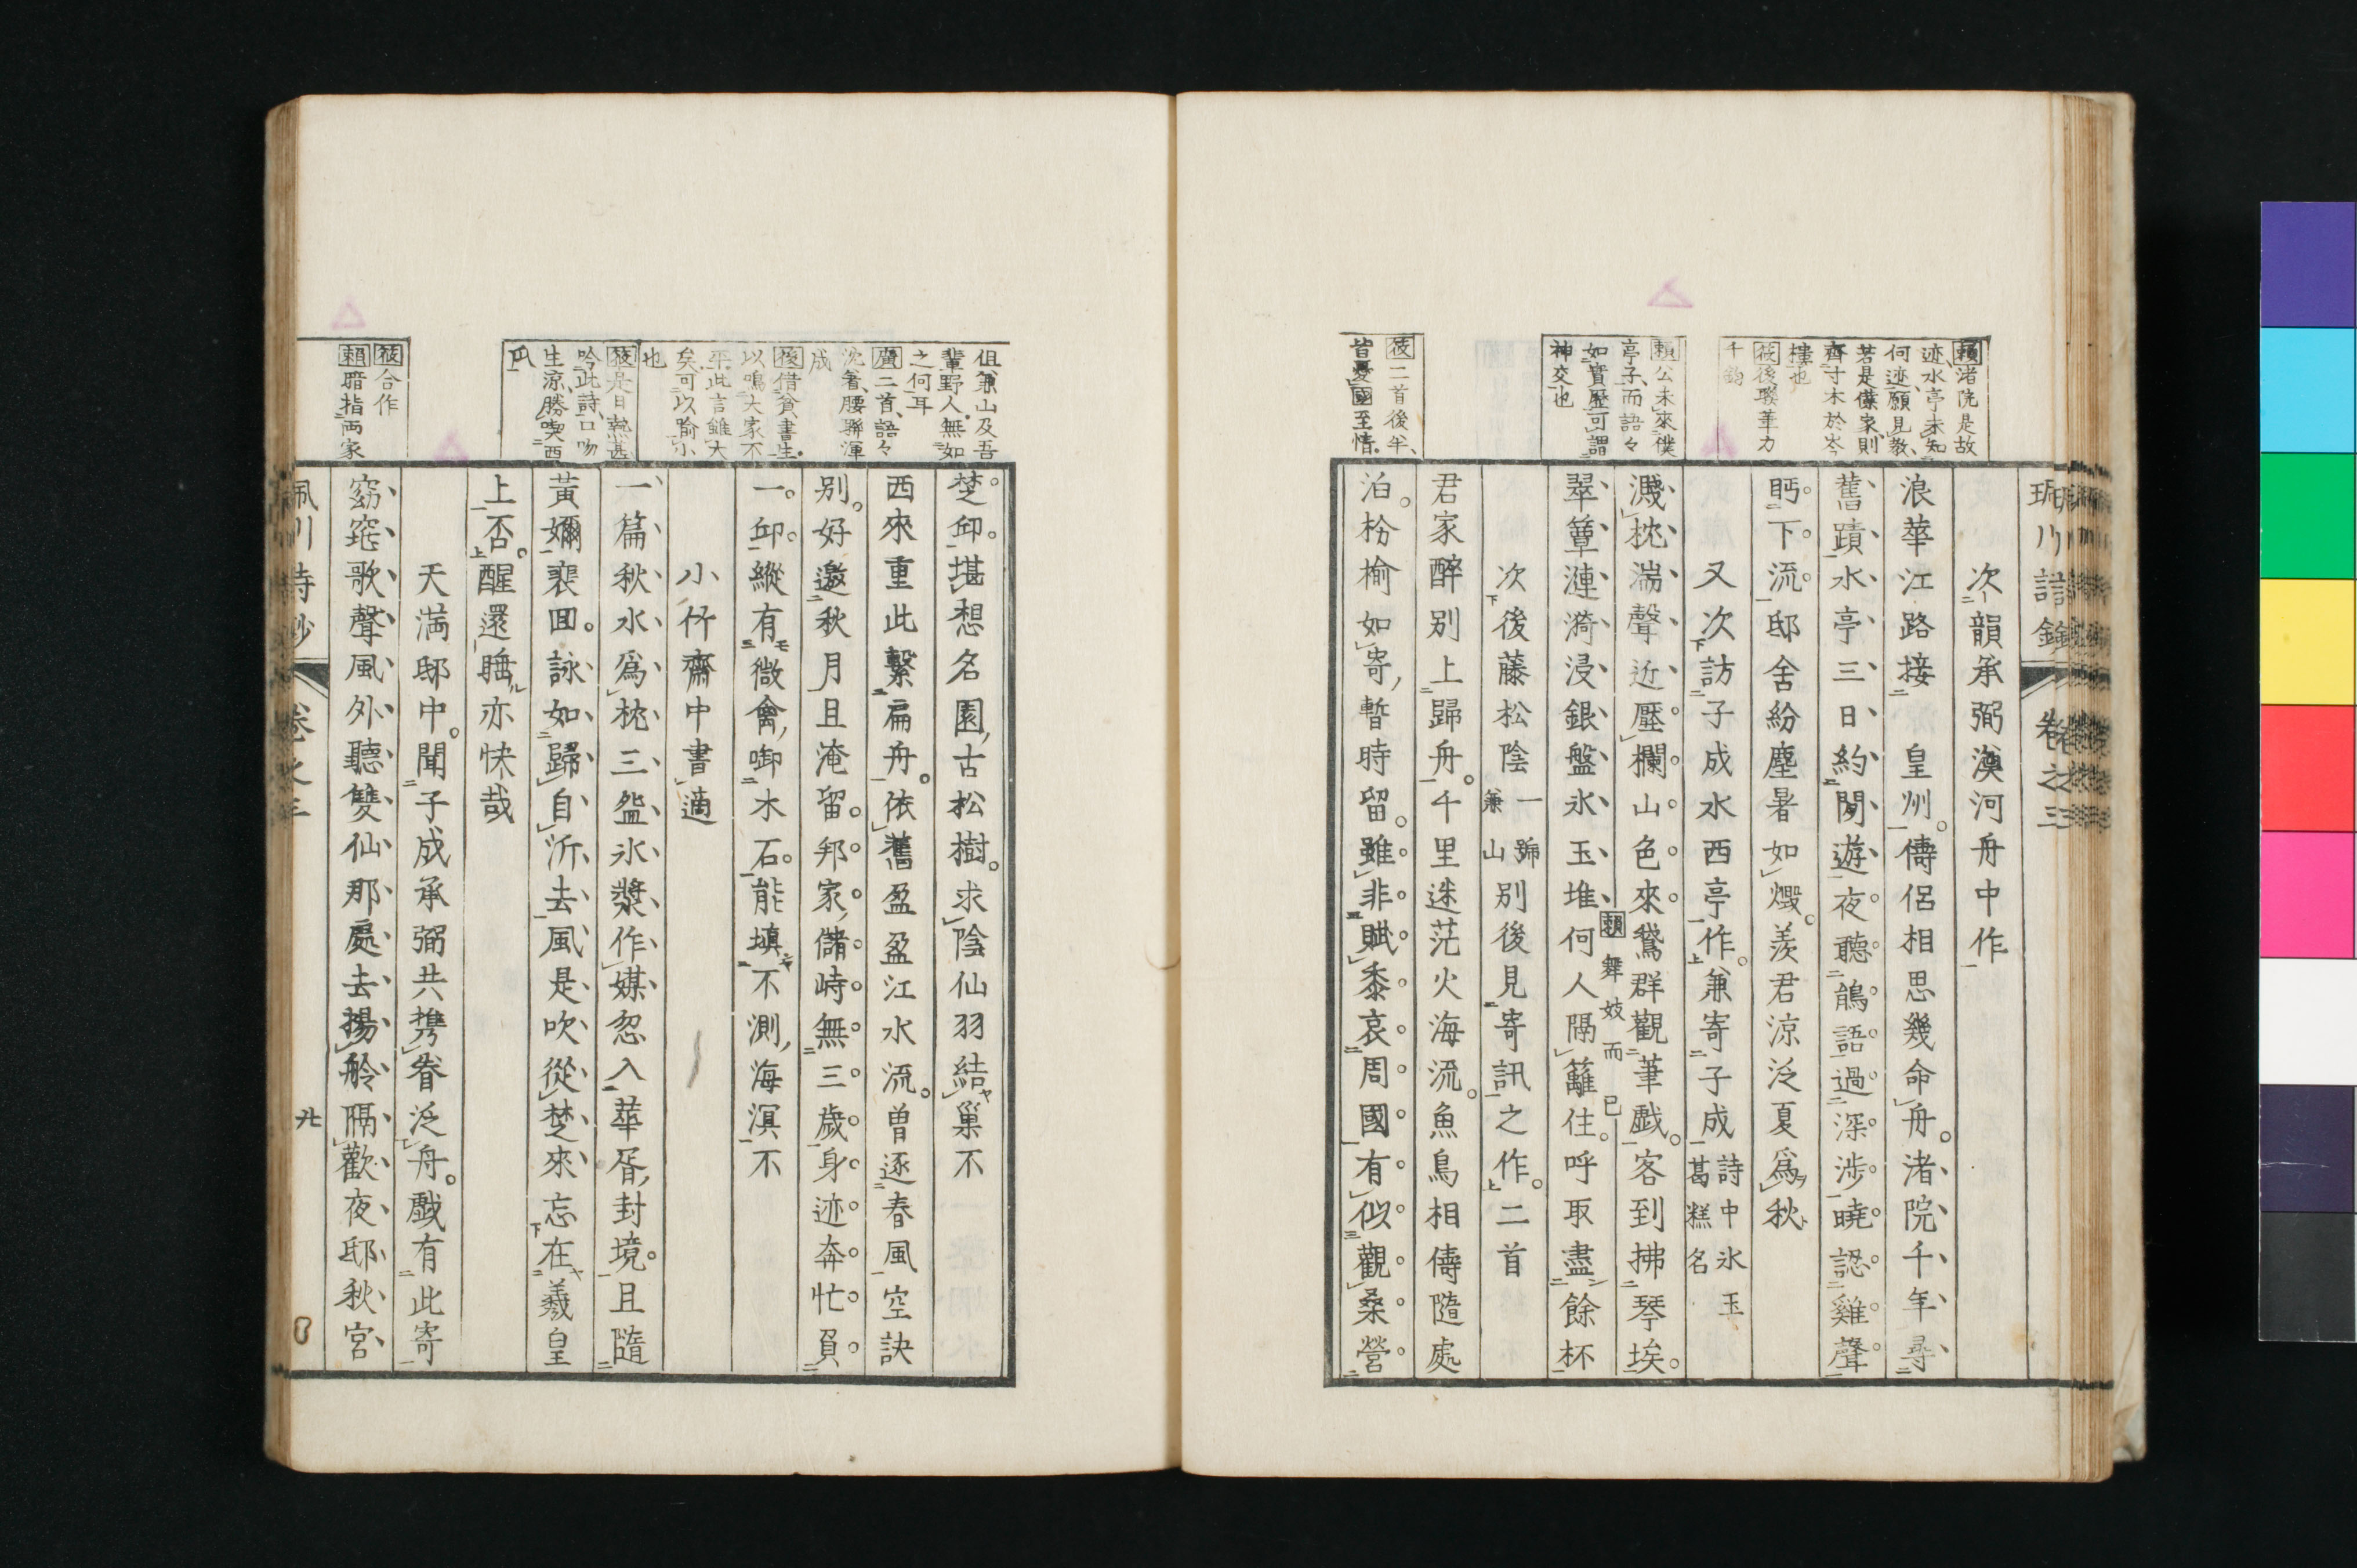 次韻承弼澳河舟中作
浪華江路接皇州儔侶相思幾命舟渚院千年尋
舊蹟水亭三日約閒遊夜聽鵑語過深渉曉認雞聲
眄下流邸舍紛塵暑如燬羨君涼泛夏爲秋
又次訪子成水西亭作兼寄子成
詩中氷玉
葛糕名
濺枕湍聲近壓欄山色來鵞群觀筆戲客到拂琴埃
賴舞妓而已
翠簟漣漪浸銀盤氷玉堆何人隔籬住呼取盡餘杯
次後藤松陰
一號
兼山
別後見寄訊之作二首
君家醉別上歸舟千里迷茫火海流魚鳥相儔隨處
泊枌榆如寄暫時留雖非賦黍哀周國有似觀桑營
賴渚院是故
迹水亭未知
何迹願見教
若是僕家則
齊寸木於岑
樓也
筱後聯筆力
千鈞
賴公未來僕
亭子而語々
如實歷可謂
神交也
筱二首後半
皆憂國至情
楚邱堪想名園古松樹求陰仙羽結巢不
西來重此繫扁舟依舊盈盈江水流曽逐春風空訣
別好邀秋月且淹留邦家儲峙無三歲身迹奔忙負
一邱縱有微禽啣木石能填不測海溟不
小竹齋中書適
一篇秋水爲枕三盌氷漿作媒忽入華胥封境且隨
黃嬭裵囬詠如歸自沂去風是吹從楚來忘在羲皇
上否醒還睡亦快哉
天満邸中聞子成承弼共携眷泛舟戲有此寄
窈窕歌聲風外聽雙仙那處去揚舲隔歡夜邸秋宮
但兼山及吾
輩野人無如
之何耳
廣二首語々
沈着腰聯渾
成
後借貧書生
以鳴大家不
平此言雖大
矣可以喻小
也
筱是日熱甚
吟此詩口吻
生涼勝喫西
瓜
筱合作
賴暗指両家
卷之三
廿